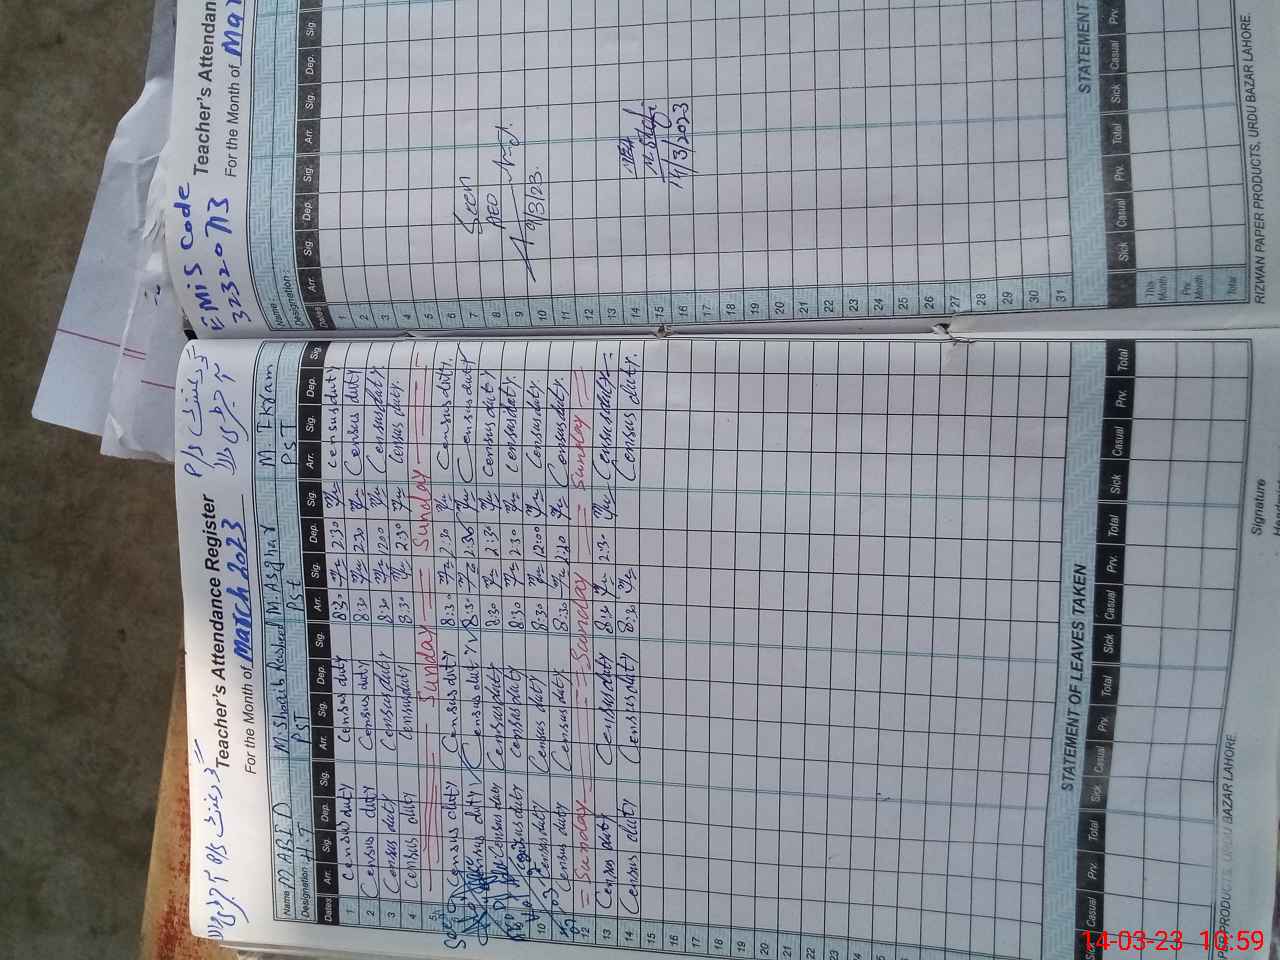 Teacher's Attendance Register
For the Month of March 2023
Name M. ABID M. Shoaib Rasheed M. Asghar M. Ikram
Designation H.T PST PST PST
Dates Arr. Sig. Dep. Sig. Arr. Sig. Dep. Sig. Arr. Sig. Dep. Sig. Arr. Sig. Dep. Sig.
1 Census duty Census duty 8:30 2:30 Census duty
2 Census duty Census duty 8:30 2:30 Census duty
3 Census duty Census duty 8:30 12:00 Census duty
4 Census duty Census duty 8:30 2:30 Census duty
5 Sunday Sunday
6 Census duty Census duty 8:30 2:30 Census duty
7 Census duty Census duty 8:30 2:30 Census duty
8 Census duty Census duty 8:30 2:30 Census duty
9 Census duty Census duty 8:30 2:30 Census duty
10 Census duty Census duty 8:30 12:00 Census duty
11 Census duty Census duty 8:30 2:30 Census duty
12 Sunday Sunday Sunday
13 Census duty Census duty 8:30 2:30 Census duty
14 Census duty Census duty 8:30 Census duty
15
16
17
18
19
20
21
22
23
24
25
26
27
28
29
30
31
STATEMENT OF LEAVES TAKEN
Sick Casual Prv. Total Sick Casual Prv. Total Sick Casual Prv. Total Sick Casual Prv. Total
Signature
PRODUCTS, URDU BAZAR LAHORE.
EMIS Code
32320713
Teacher's Attendan
For the Month of Mar
Name :
Designation :
Dates Arr. Sig. Dep. Sig. Arr. Sig. Dep. Sig.
1
2
3
4
5
6
7
8
9
10
11
12
13
14
15
16
17
18
19
20
21
22
23
24
25
26
27
28
29
30
31
Seen
AEO
9/3/23
14/3/2023
STATEMENT
Sick Casual Prv. Total Sick Casual Prv.
This Month
Prv. Month
Total
RIZWAN PAPER PRODUCTS, URDU BAZAR LAHORE.
14-03-23 10:59